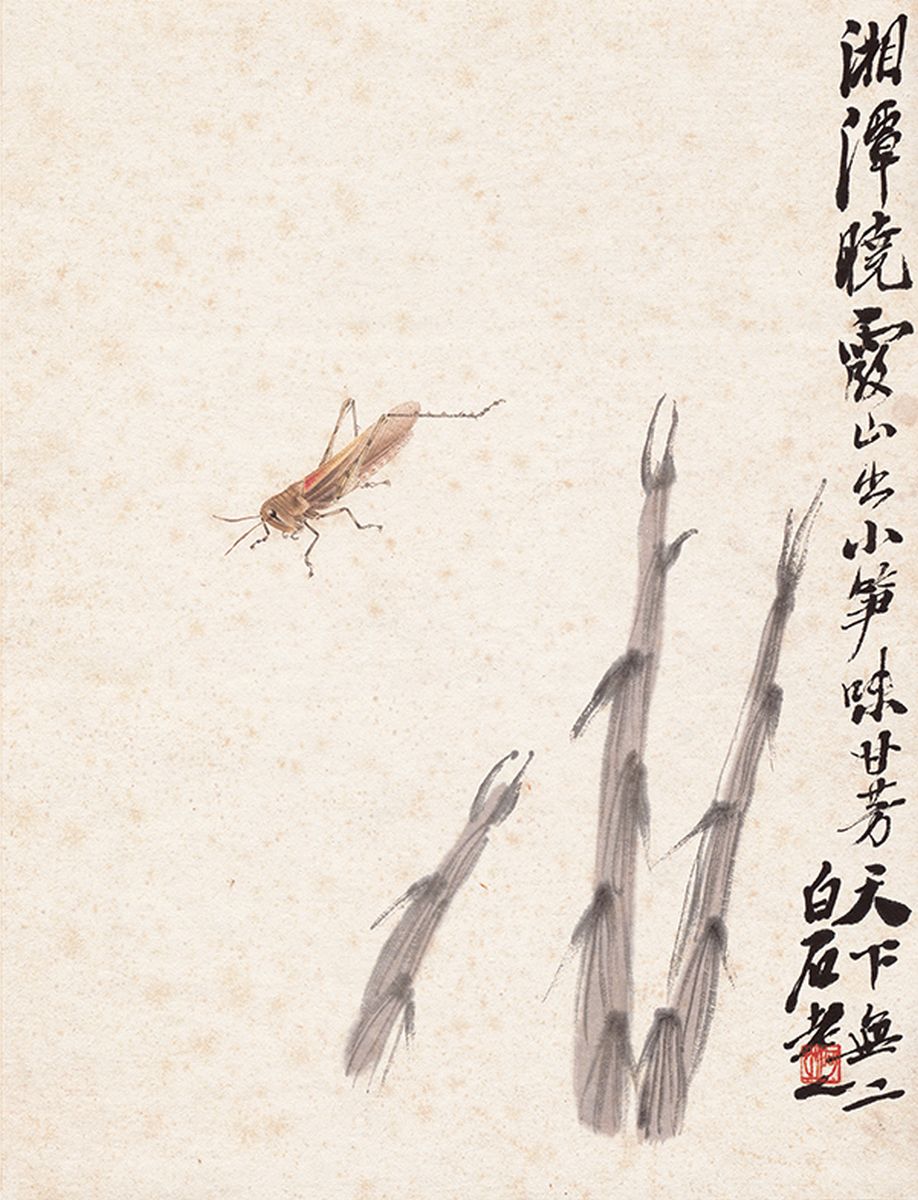 湘潭曉霞山出小笋味甘芳天下無二
白石老人